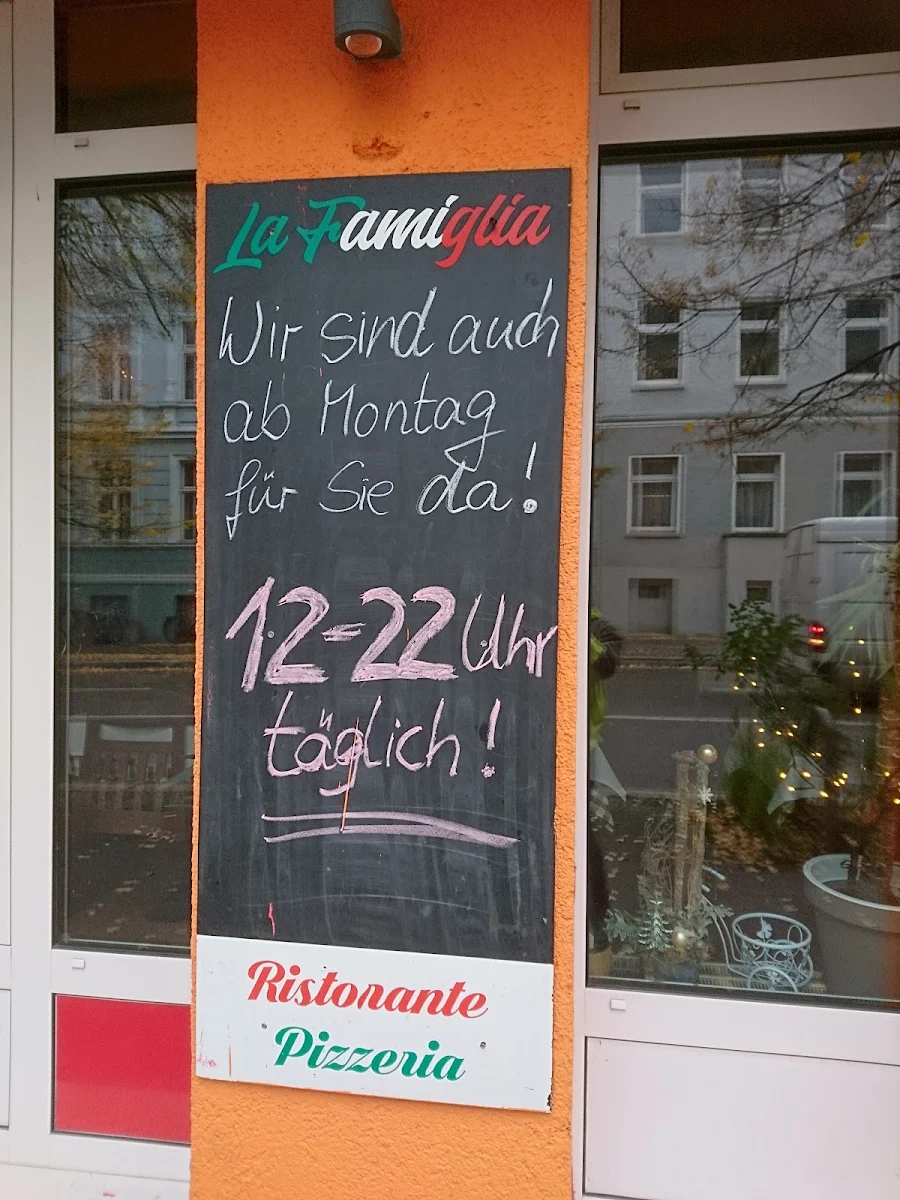 La Famiglia
Wir sind auch
ab Montag
für Sie da!
12-22 Uhr
täglich!
Ristorante
Pizzeria